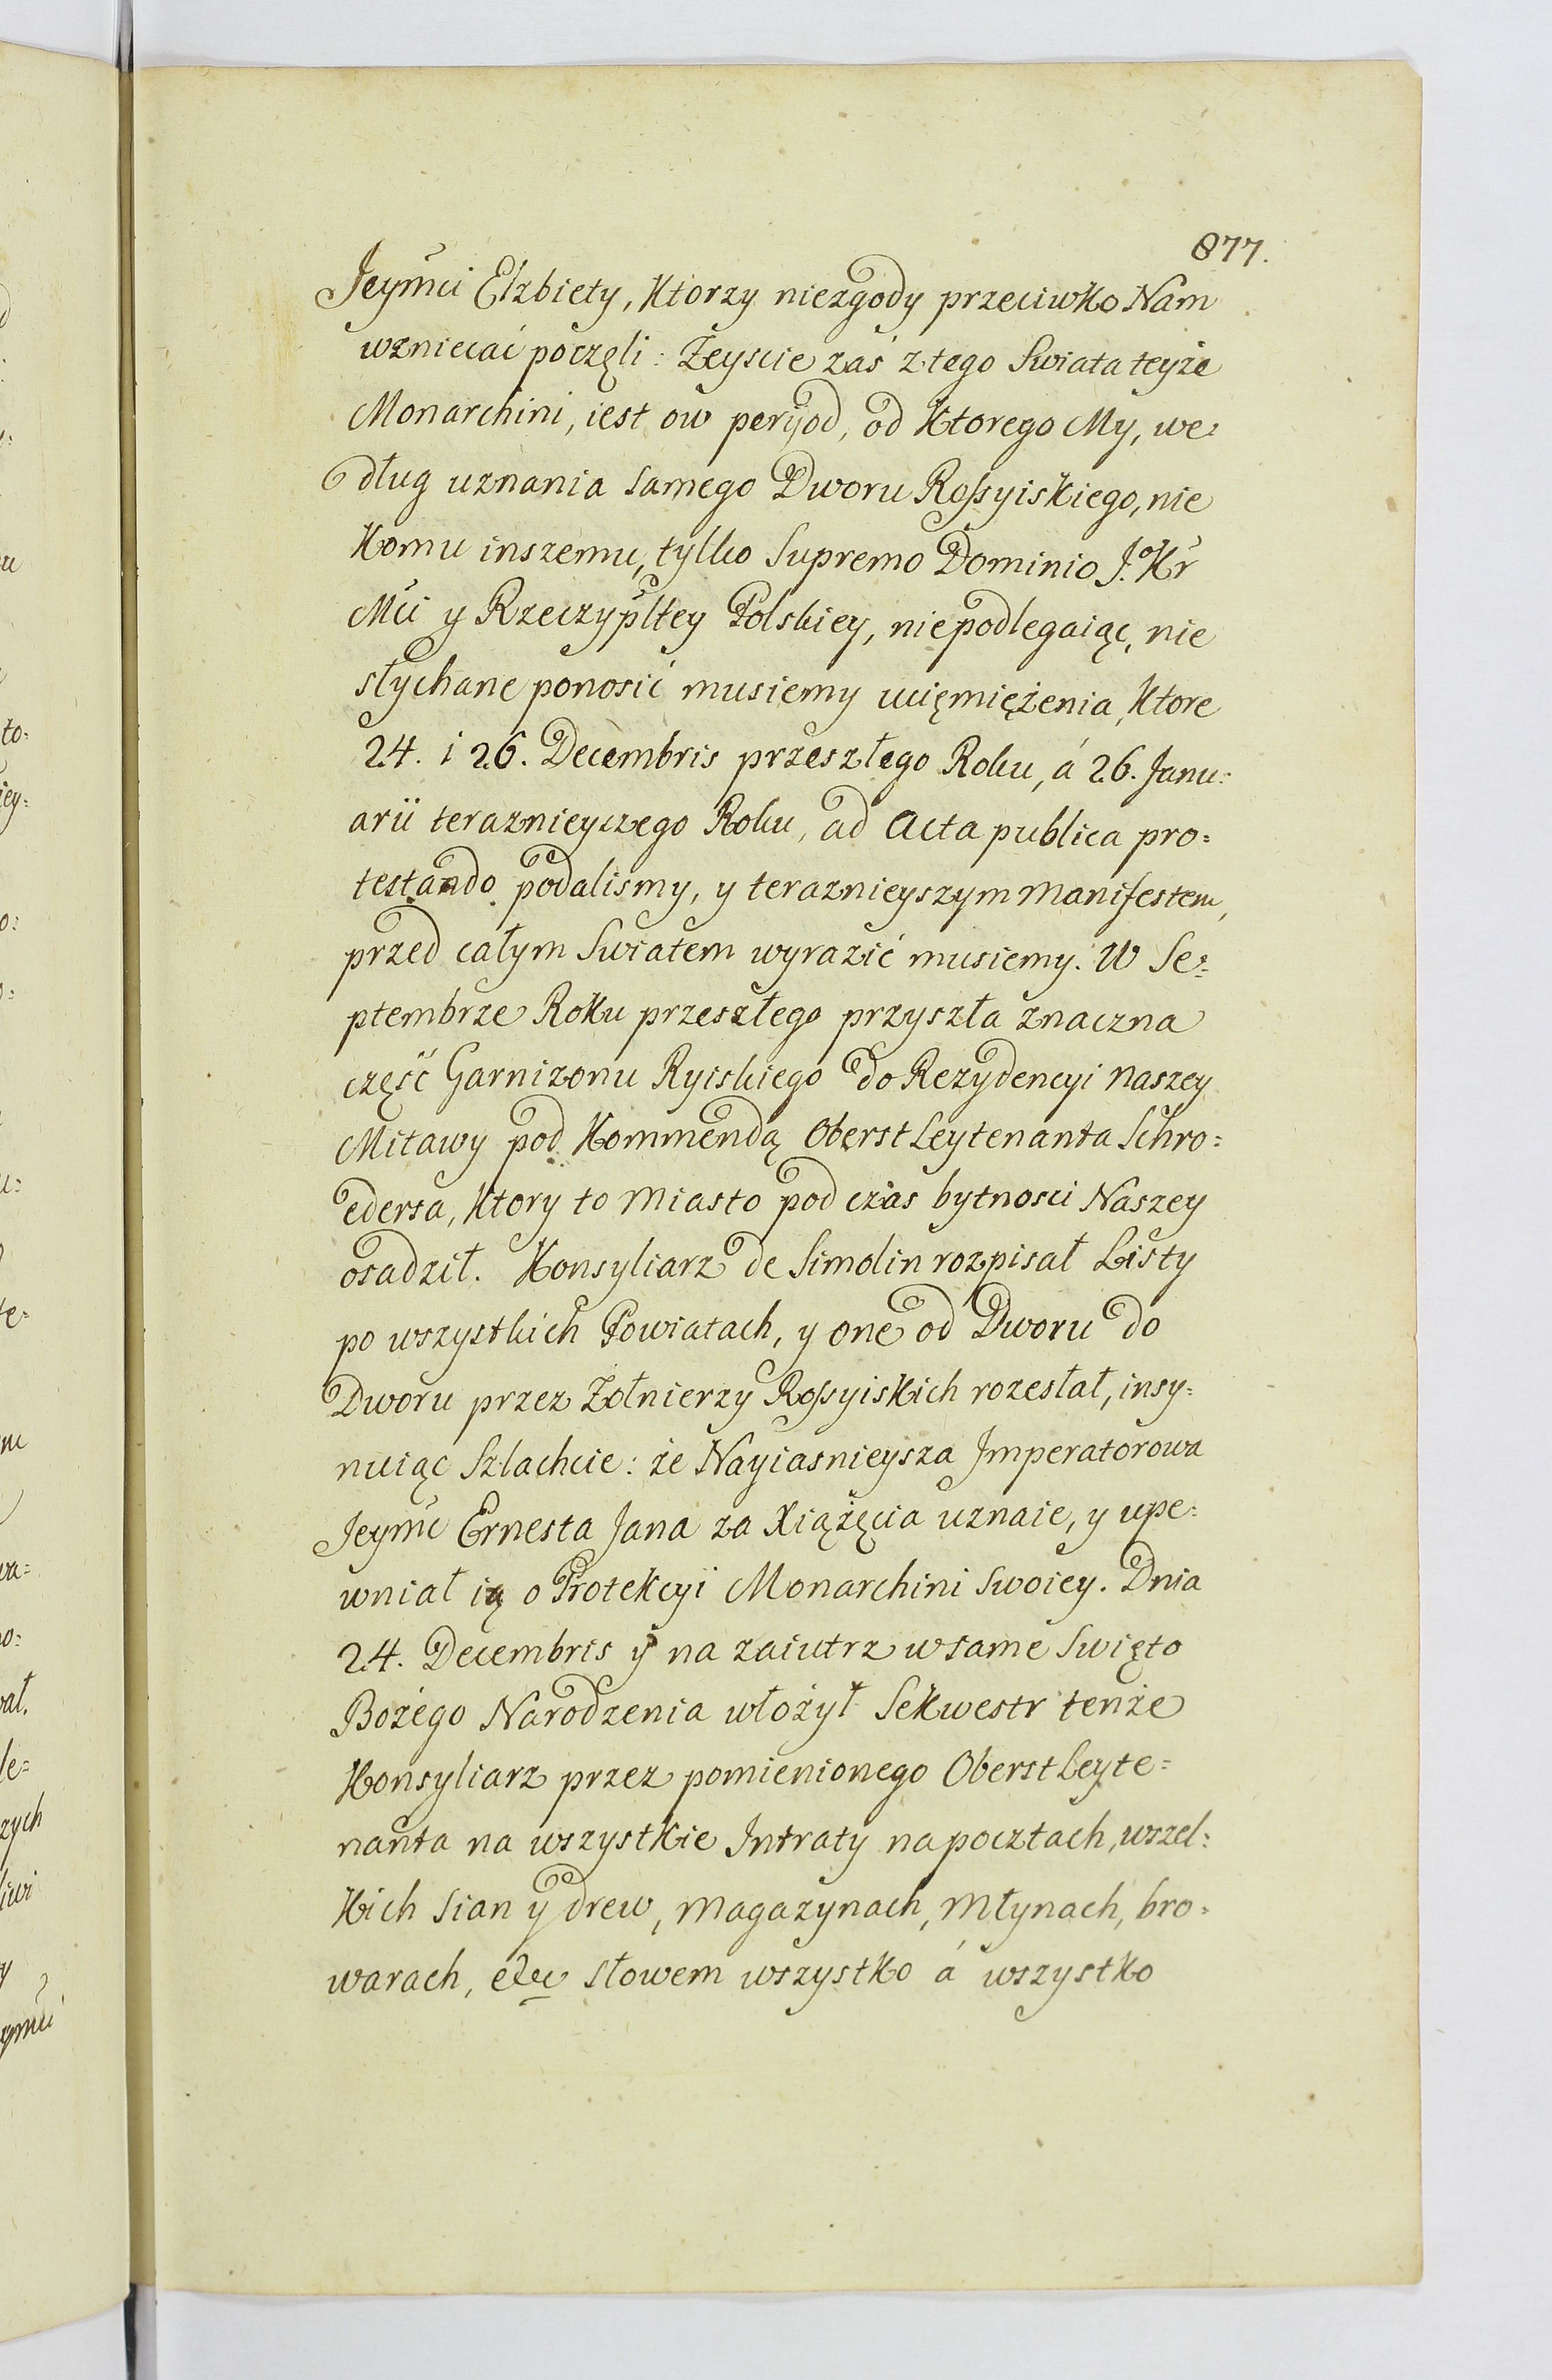 877.
Jeymci Elzbiety, Ktorzy niezgody przeciwko Nam
wzniecać poczęli: Zeyscie zaś z tego Swiata teyże
Monarchini, iest ow peryod, od Ktorego My, we=
dług uznania samego Dworu Rossyiskiego, nie
Komu inszemu, tylko Supremo Dominio J. Kr
Mci y Rzeczypltey Polskiey, niepodlegaiąc, nie
słychane ponosić musiemy ucięmiężenia, Ktore
24. i 26. Decembris przeszłego Roku, á 26. Janu=
arii teraznieyczego Roku, ad Acta publica pro=
testando podalismy, y teraznieyszym Manifestem,
przed całym Swiatem wyrazić musiemy. W Se=
ptembrze Roku przeszłego przyszła znaczna
część Garnizonu Ryiskiego do Rezydencyi naszey
Mitawy pod Kommendą OberstLeytenanta Schro=
edersa, Ktory to Miasto pod czas bytnosci Naszey
osadził. Konsyliarz de Simolin rozpisał Listy
po wszystkich Powiatach, y one od Dworu do
Dworu przez Zołnierzy Rossyiskich rozesłał, insy=
nuiąc Szlachcie: że Nayiasnieysza Jmperatorowa
Jeymc Ernesta Jana za Xiążęcia uznaie, y upe=
wniał ią o Protekcyi Monarchini swoiey. Dnia
24. Decembris y na zaiutrz w same Swięto
Bożego Narodzenia włożył Sekwestr tenże
Konsyliarz przez pomienionego OberstLeyte=
nanta na wszystkie Jntraty na pocztach, wszel=
Kich Sian y drew, Magazynach, Młynach, bro=
warach, etc słowem wszystko á wszystko